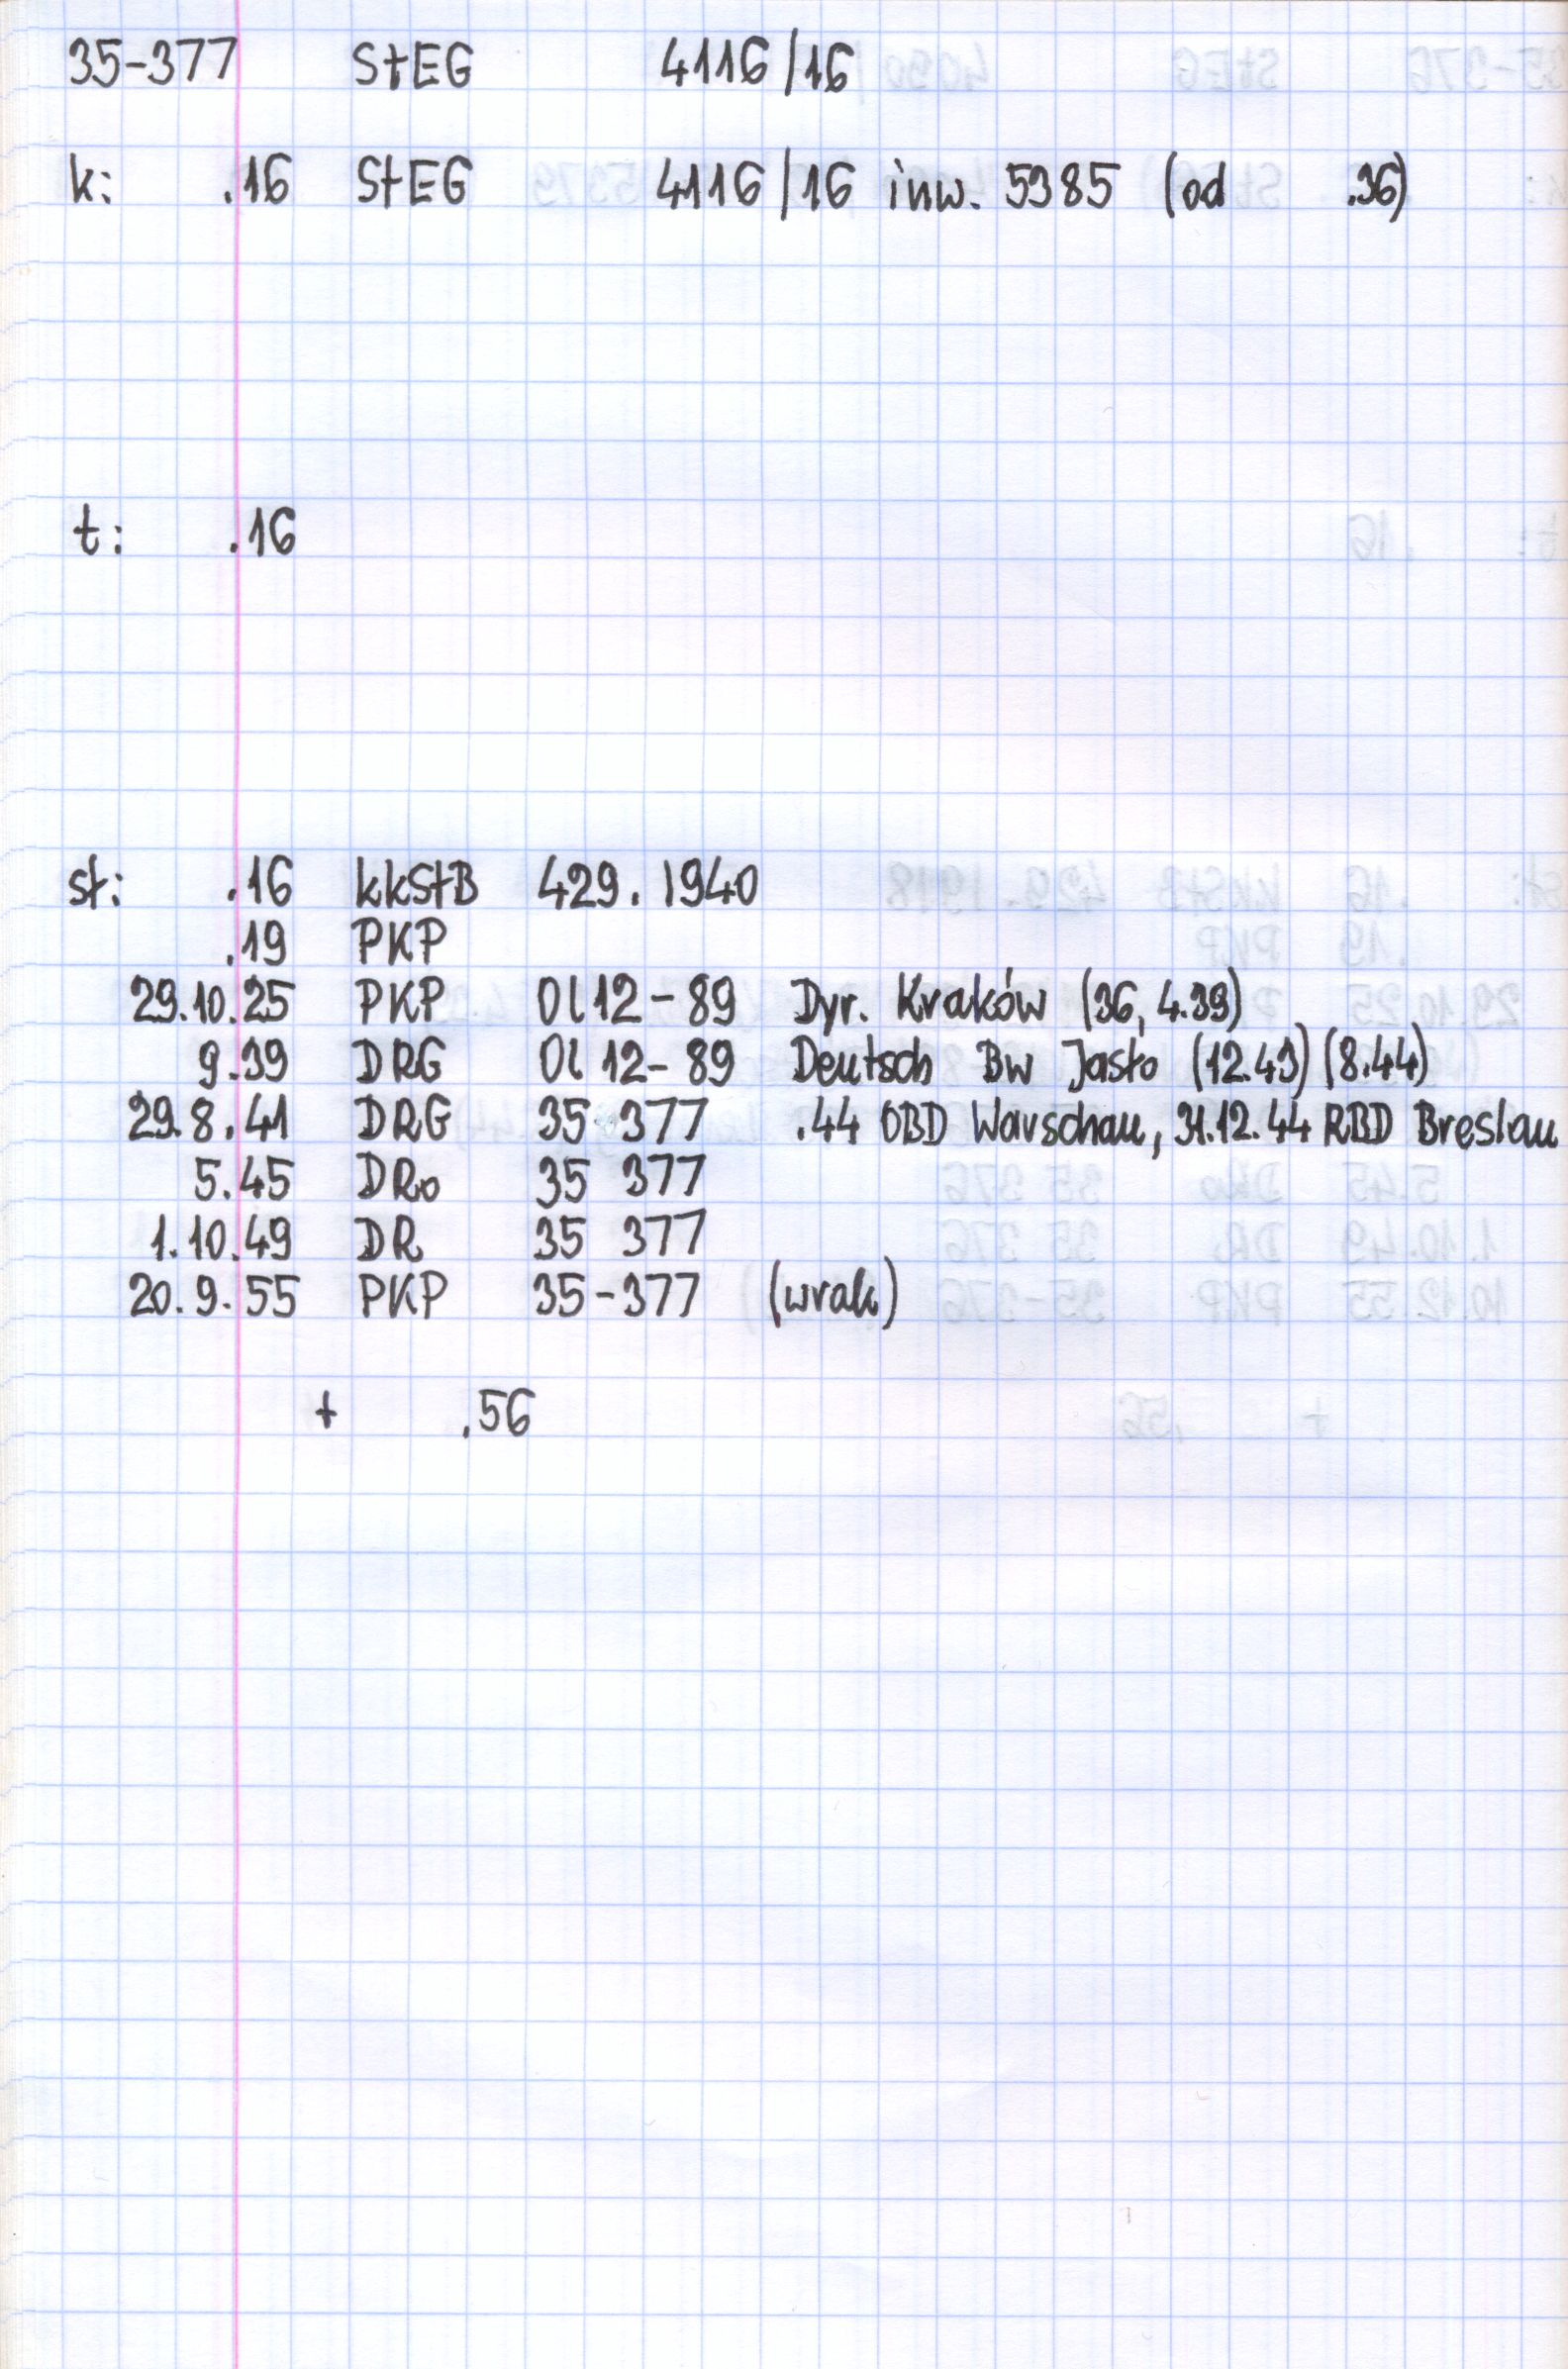 35-377 StEG 4116/16
k: .16 StEG 4116/16 inw. 5385 (od .36)
t: .16
st: .16 kkStB 429.1940
.19 PKP
29.10.25 PKP Ol12-89 Dyr. Kraków (36, 4.39)
9.39 DRG Ol12-89 Deutsch Bw Jasło (12.43) (8.44)
29.8.41 DRG 35 377 .44 OBD Warschau, 31.12.44 RBD Breslau
5.45 DRo 35 377
1.10.49 DR 35 377
20.9.55 PKP 35-377 (wrak)
+ .56